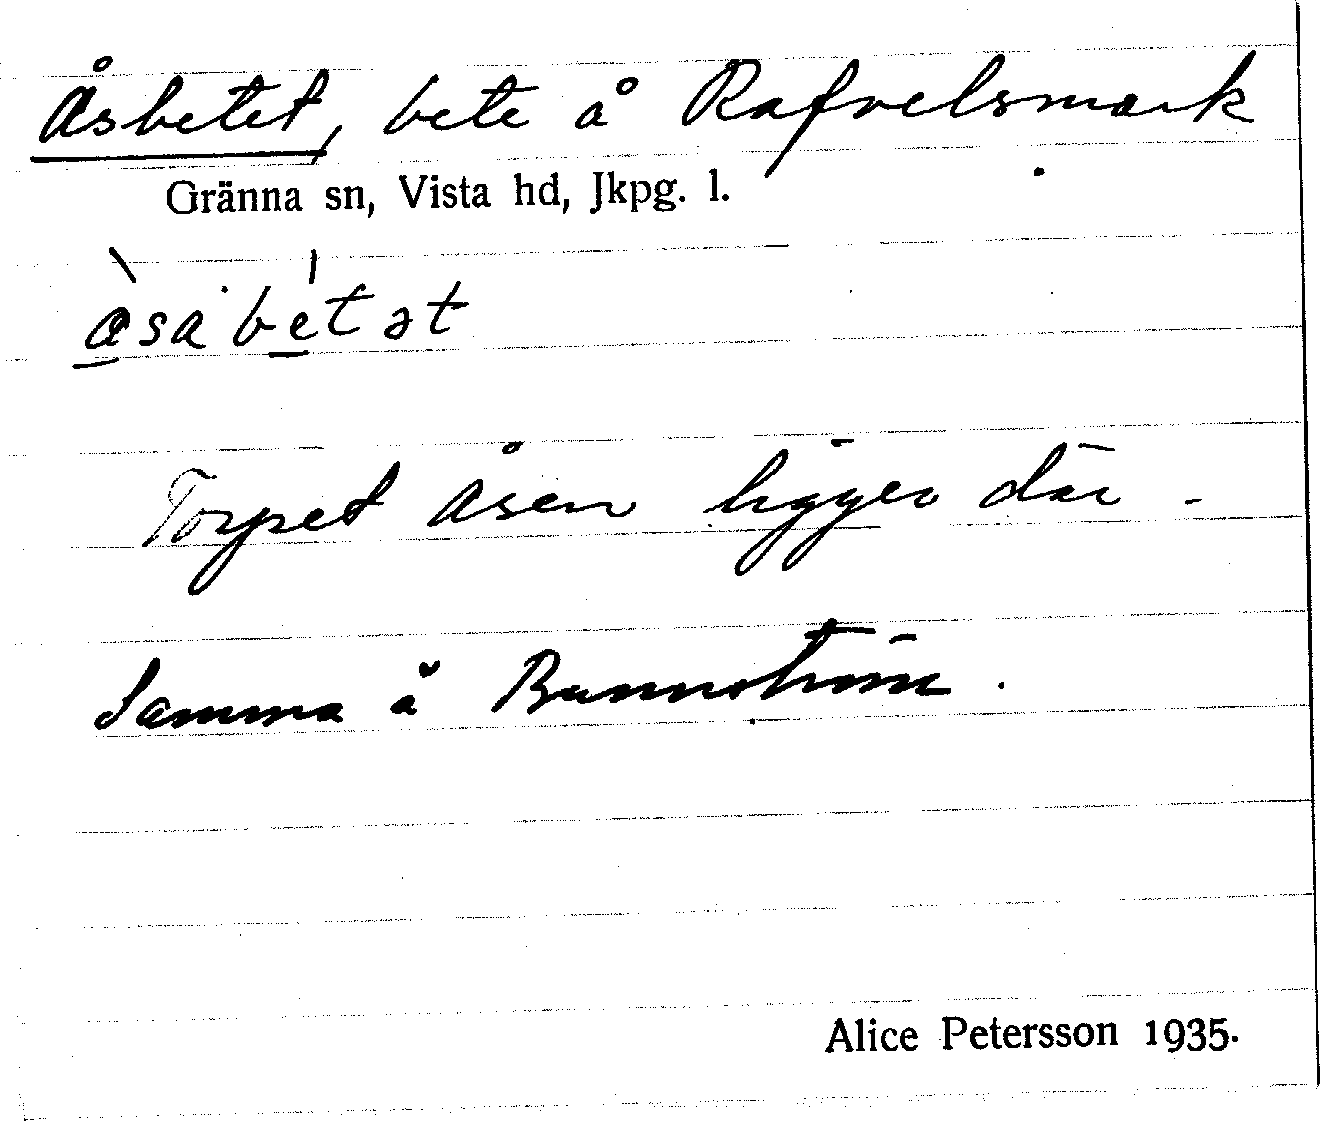 Åsbetet, bete å Rafvelsmark
Gränna sn, Vista hd, Jkpg. l.
åsabetət
Torpet Åsen ligger där -
Samma å Bunnström.
Alice Petersson 1935.